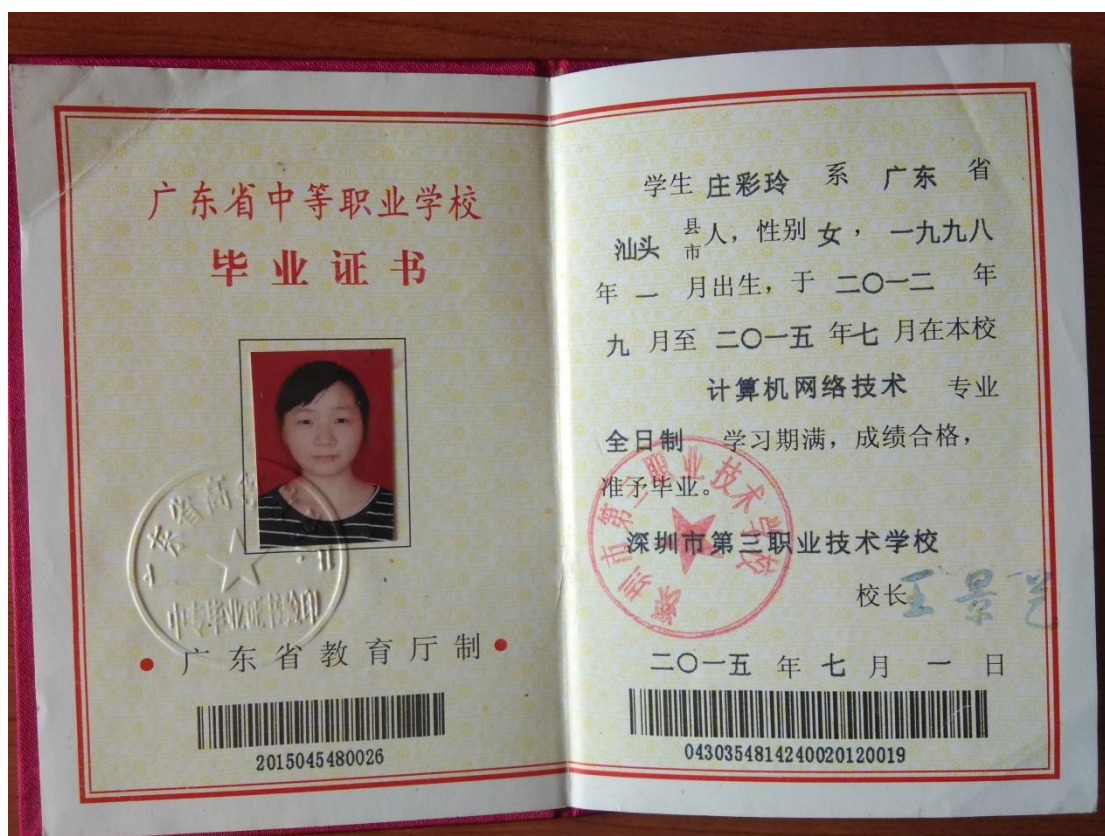 广东省中等职业学校
毕业证书
中专毕业证书验印
广东省教育厅制
2015045480026
学生 庄彩玲 系 广东 省
汕头 县市人，性别 女， 一九九八
年 一 月出生，于 二〇一二 年
九 月至 二〇一五 年七 月在本校
计算机网络技术 专业
全日制 学习期满，成绩合格，
准予毕业。
深圳市第三职业技术学校
深圳市第三职业技术学校
校长
二〇一五 年 七 月 一 日
0430354814240020120019